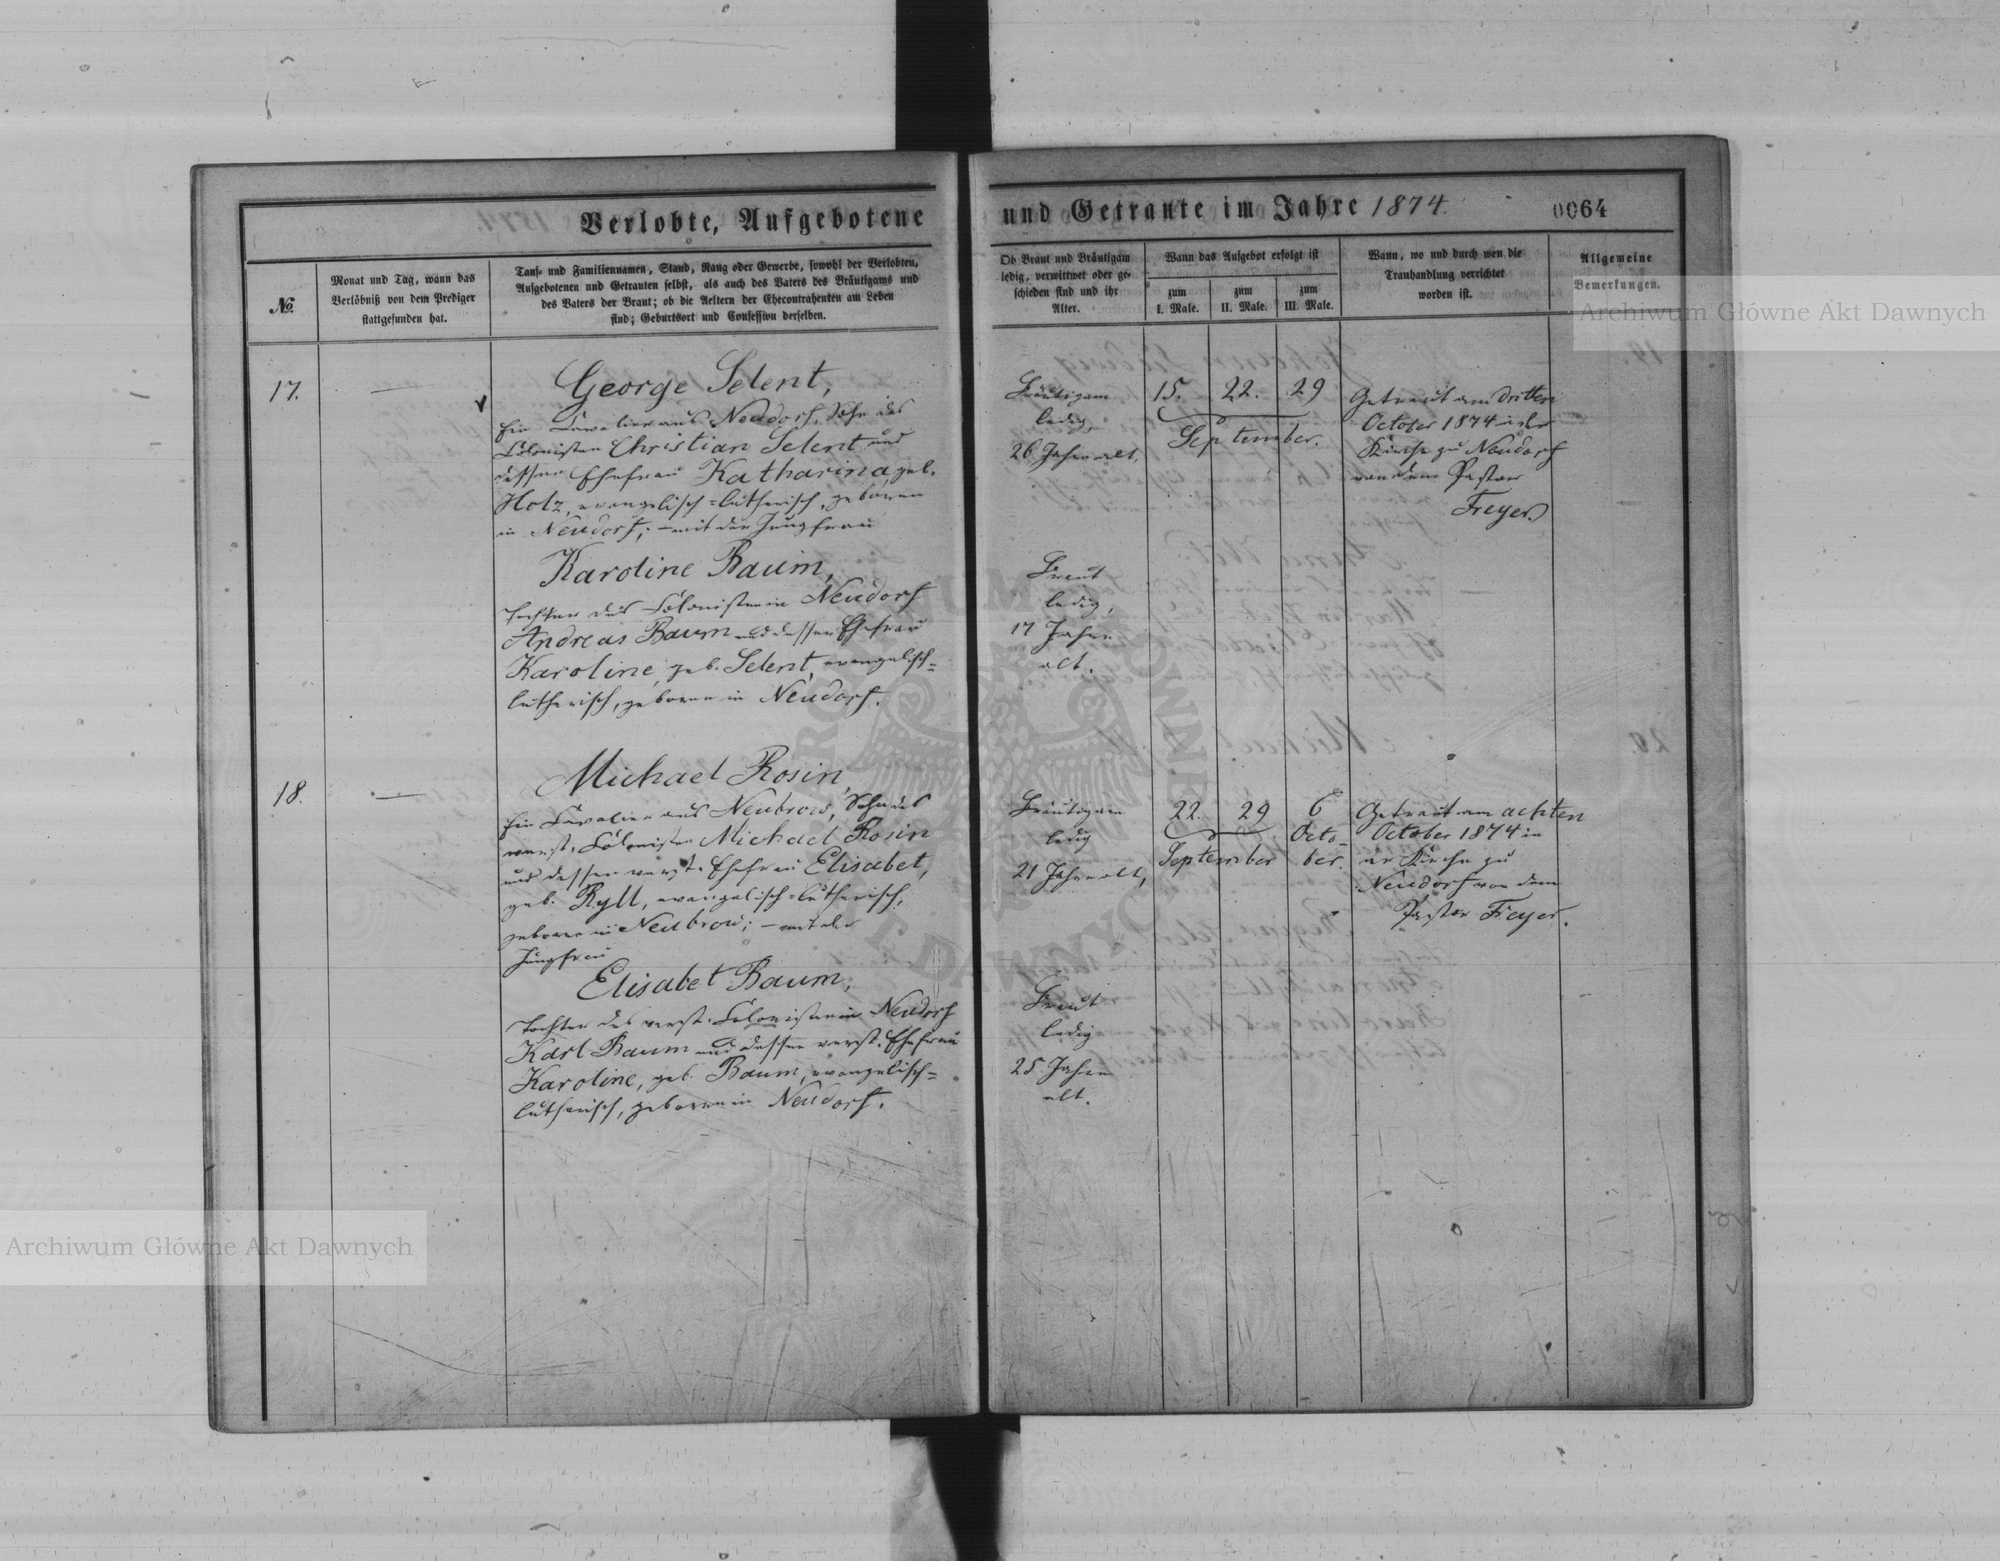 Verlobte, Aufgebotene und Getraute im Jahre 1874.
0064
№
Monat und Tag, wann das
Verlöbniß von dem Prediger
stattgefunden hat.
Tauf- und Familiennamen, Stand, Rang oder Gewerbe, sowohl der Verlobten,
Aufgebotenen und Getrauten selbst, als auch des Vaters des Bräutigams und
des Vaters der Braut; ob die Aeltern der Ehecontrahenten am Leben
sind; Geburtsort und Confession derselben.
Ob Braut und Bräutigam
ledig, verwittwet oder ge-
schieden sind und ihr
Alter.
Wann das Aufgebot erfolgt ist
zum
I. Male.
zum
II. Male.
zum
III. Male.
Wann, wo und durch wen die
Trauhandlung verrichtet
worden ist.
Allgemeine
Bemerkungen.
17.
George Selent,
Ein Cavalier aus Neudorf, Sohn des
Colonisten Christian Selent und
dessen Ehefrau Katharina, geb.
Holz, evangelisch-lutherisch, geboren
in Neudorf; – mit der Jungfrau
Karoline Baum,
Tochter des Colonisten in Neudorf
Andreas Baum und dessen Ehefrau
Karoline, geb. Selent, evangelisch-
lutherisch, geboren in Neudorf.
Bräutigam
ledig,
26 Jahre alt.
Braut
ledig,
17 Jahre
alt.
15. 22. 29
September.
Getraut am dritten
October 1874 in der
Kirche zu Neudorf
von dem Pastor
Freyer.
18.
Michael Rosin,
Ein Cavalier aus Neubrow, Sohn des
verst. Colonisten Michael Rosin
und dessen verst. Ehefrau Elisabet,
geb. Ryll, evangelisch-lutherisch,
geboren in Neubrow; – mit der
Jungfrau
Elisabet Baum,
Tochter des verst. Colonisten in Neudorf
Karl Baum und dessen verst. Ehefrau
Karoline, geb. Baum, evangelisch-
lutherisch, geboren in Neudorf.
Bräutigam
ledig
21 Jahre alt,
Braut
ledig
25 Jahre
alt.
22. 29 6
September
Octo-
ber.
Getraut am achten
October 1874 in
der Kirche zu
Neudorf von dem
Pastor Freyer.
Archiwum Główne Akt Dawnych
Archiwum Główne Akt Dawnych